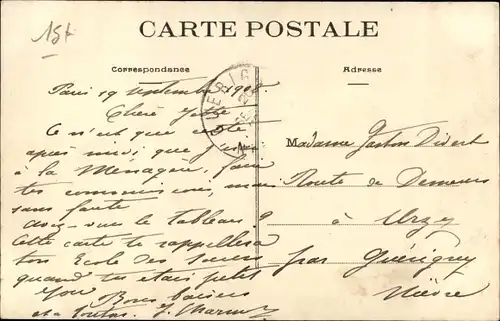 15f
CARTE POSTALE
Correspondance
Adresse
Paris 19 septembre 1908
Chère
Ce n'est que cette
après midi, que j'
à la Ménagère, faire
tes commissions, mais
sans faute
avez-vous le tableau?
Cette carte te rappellera
ton Ecole des Soeurs
quand tu étais petit
Bons baisers
et à toutes.
GUERIG
20
Madame Gaston Didert
Route de Demeurs
à Urzy
par Guérigny
Nièvre